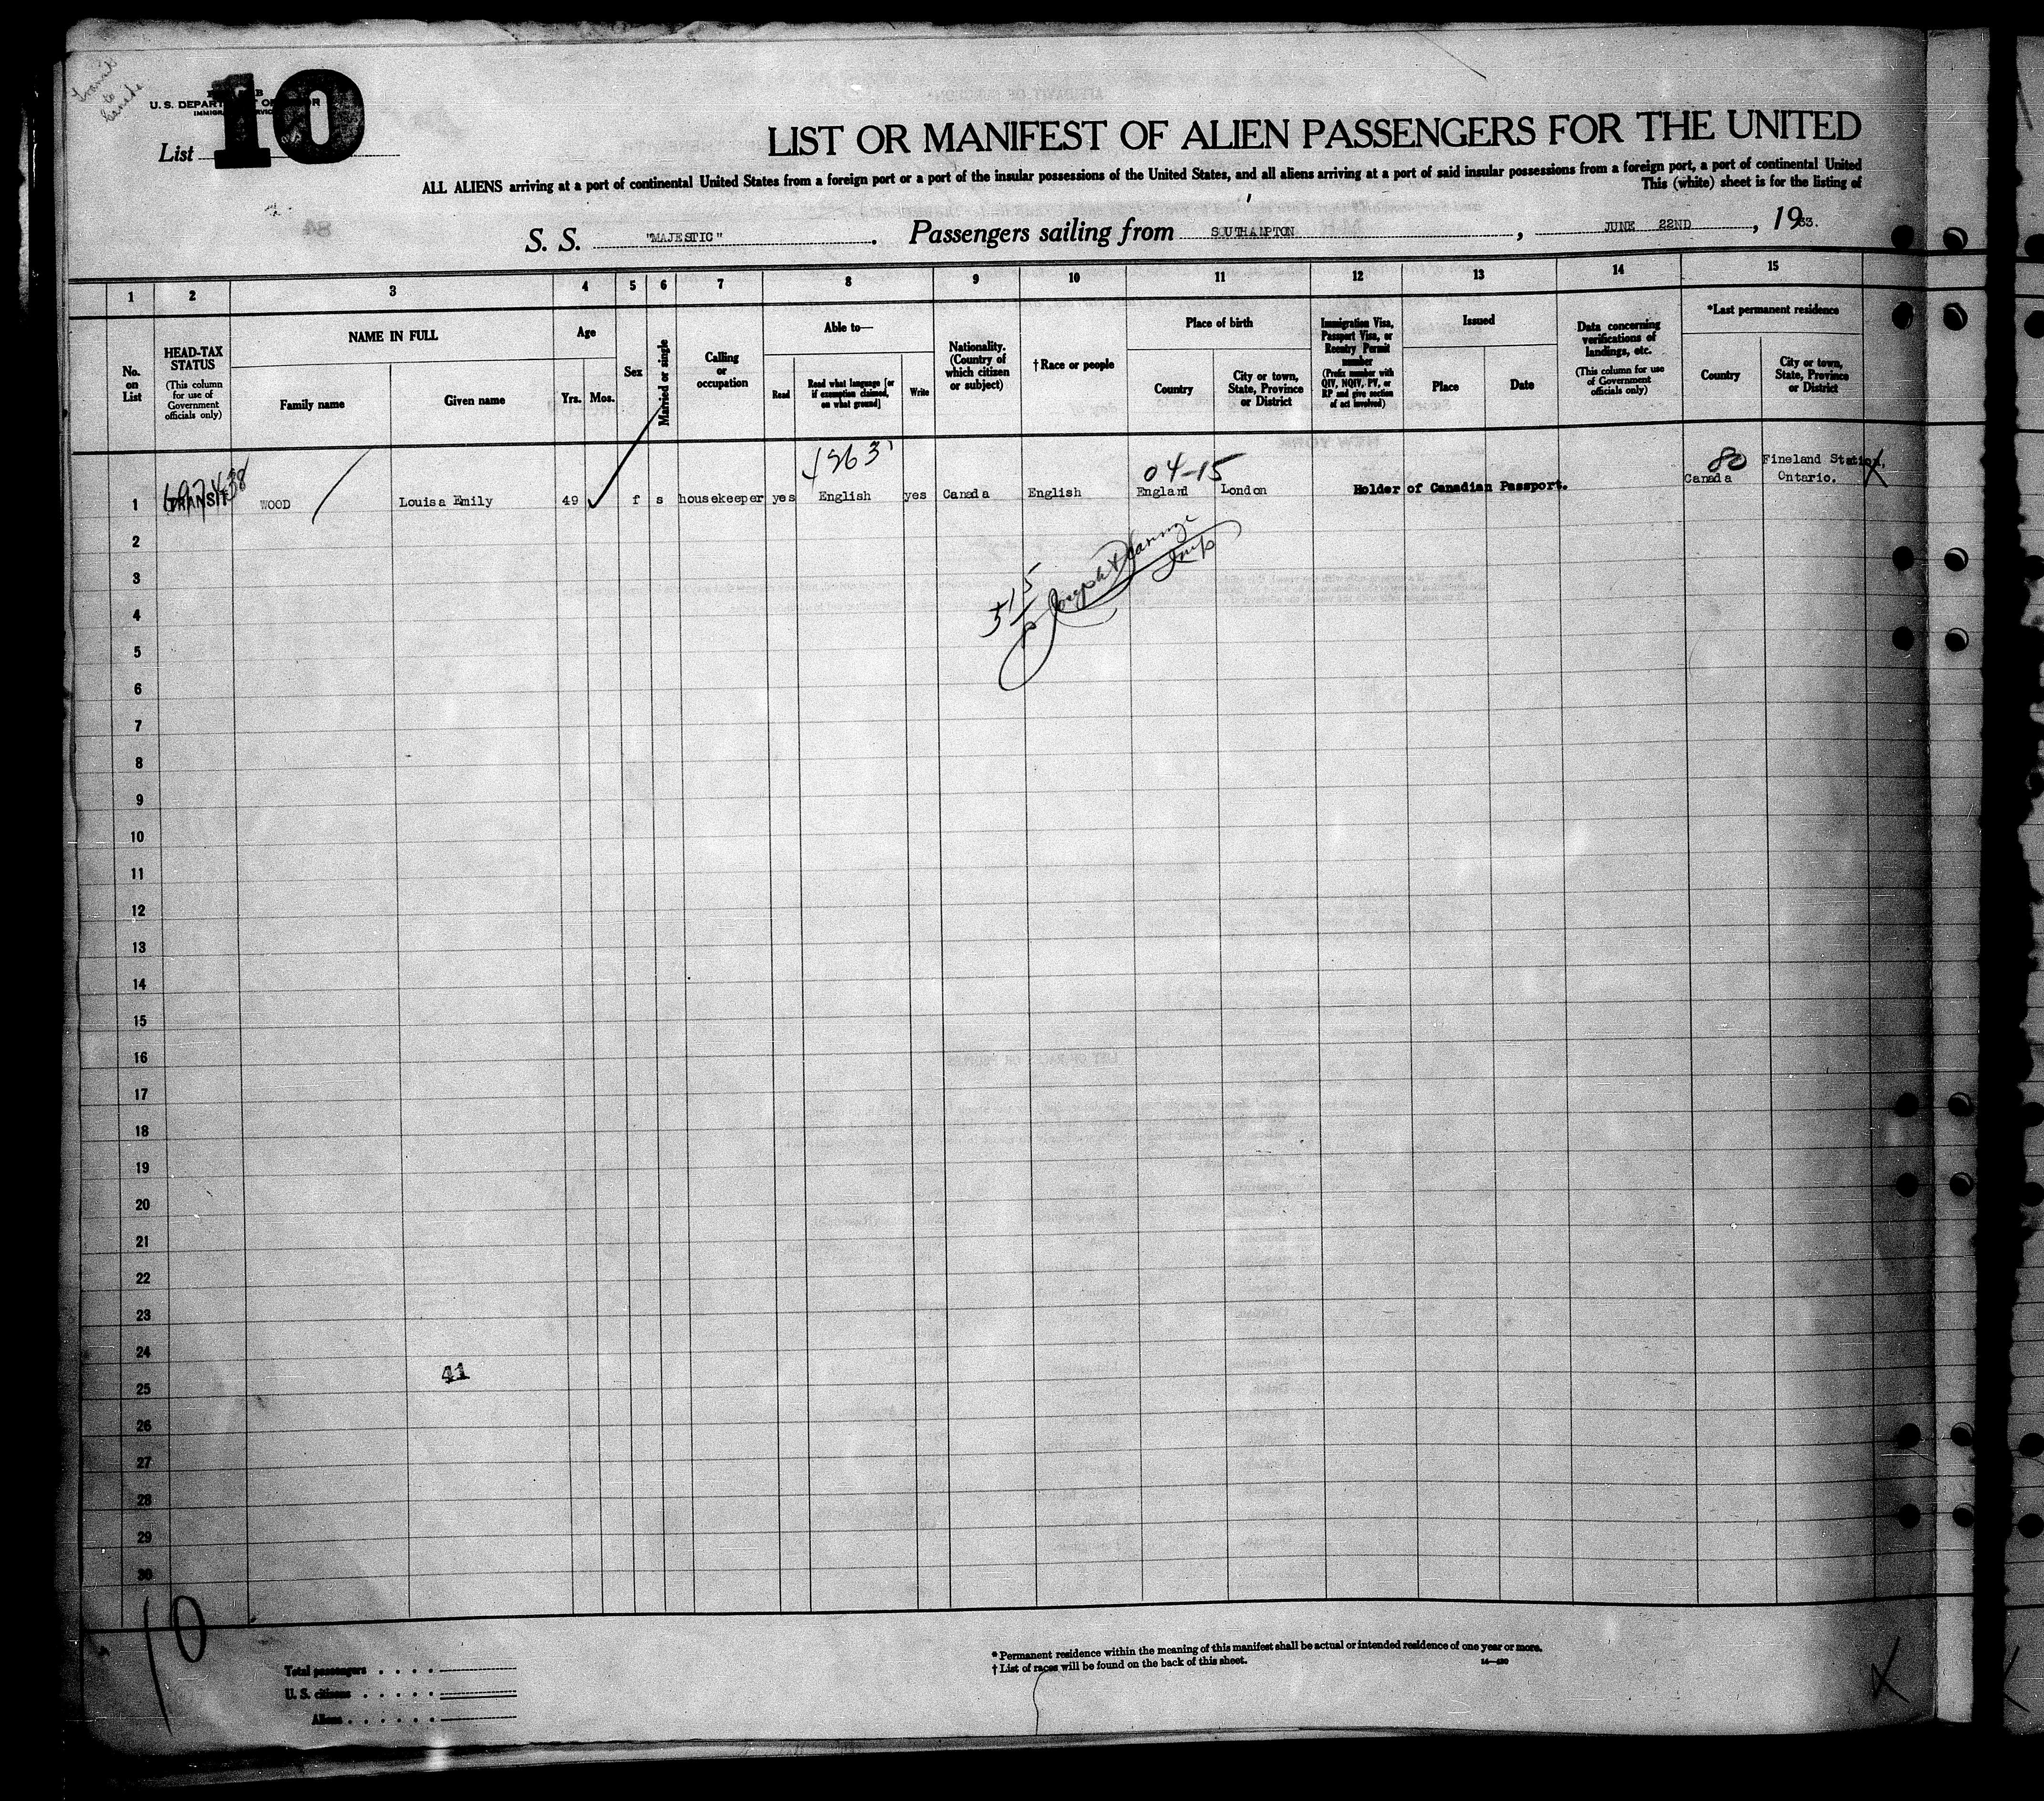 Transit
to
Canada
U. S. DEPARTMENT OF LABOR
10
List
LIST OR MANIFEST OF ALIEN PASSENGERS FOR THE UNITED
ALL ALIENS arriving at a port of continental United States from a foreign port or a port of the insular possessions of the United States, and all aliens arriving at a port of said insular possessions from a foreign port, a port of continental United
This (white) sheet is for the listing of
S. S. "MAJESTIC". Passengers sailing from SOUTHAMPTON, JUNE 22ND, 1933.
1 2 3 4 5 6 7 8 9 10 11 12 13 14 15
No. on List
HEAD-TAX STATUS
(This column for use of Government officials only)
NAME IN FULL
Family name
Given name
Age
Yrs. Mos.
Sex
Married or single
Calling or occupation
Able to—
Read
Read what language [or if exemption claimed, on what ground]
Write
Nationality. (Country of which citizen or subject)
†Race or people
Place of birth
Country
City or town, State, Province or District
Immigration Visa, Passport Visa, or Reentry Permit number
(Prefix number with QIV, NQIV, PV, or RP and give section of act involved)
Issued
Place
Date
Data concerning verifications of landings, etc.
(This column for use of Government officials only)
*Last permanent residence
Country
City or town, State, Province or District
04-15
80
1 TRANSIT WOOD Louisa Emily 49 f s housekeeper yes English yes Canada English England London Holder of Canadian Passport. Canada Fineland Station, Ontario.
2
3
4
5
6
7
8
9
10
11
12
13
14
15
16
17
18
19
20
21
22
23
24
41
25
26
27
28
29
30
10
Total passengers
U. S. citizens
Aliens
* Permanent residence within the meaning of this manifest shall be actual or intended residence of one year or more.
† List of races will be found on the back of this sheet.